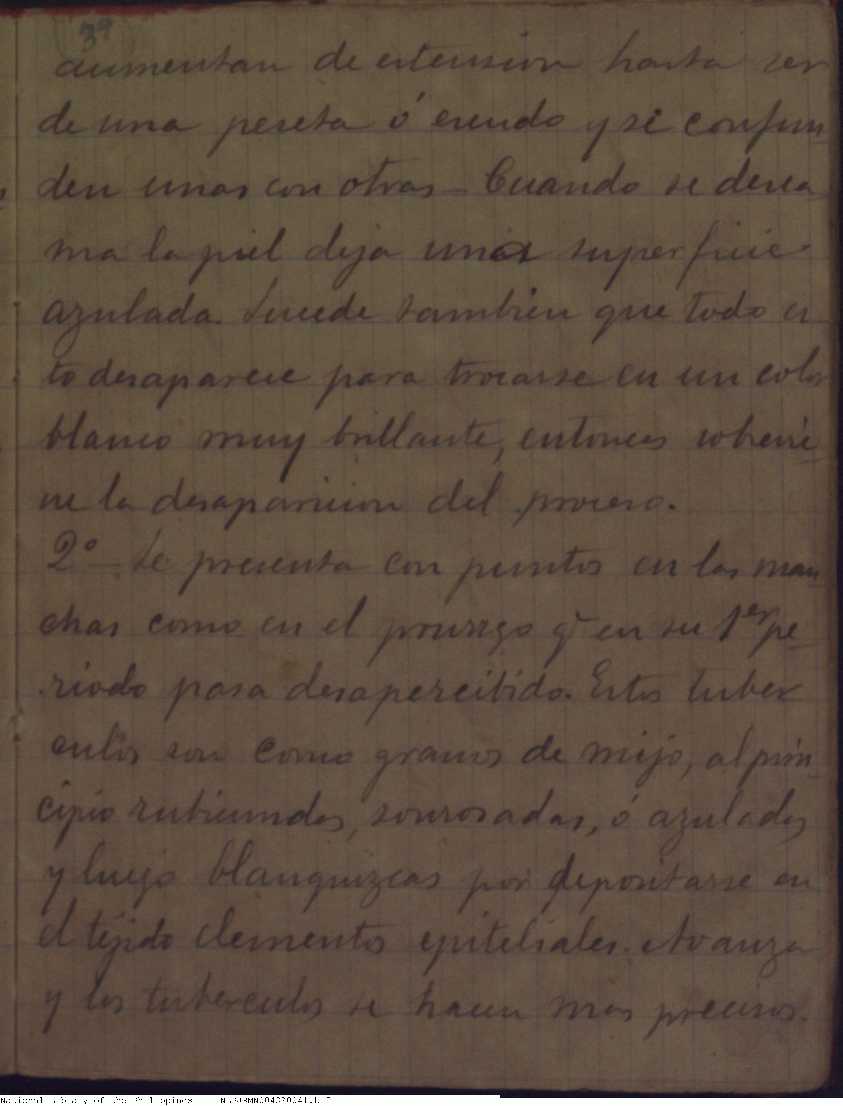 39
aumentan de extension hasta ser
de una peseta ó escudo y se confun-
den unas con otras – Cuando se desca
ma la piel deja una superficie
azulada. Sucede tambien que todo es
to desaparece para trocarse en un color
blanco muy brillante, entonces sobrevie-
ne la desaparicion del proceso.
2º – Se presenta con puntos en las man-
chas como en el prurigo q̃ en su 1er pe-
riodo pasa desapercibido. Estos tuber
culos son como granos de mijo, al prin-
cipio rubicundos, sonrosadas, ó azulados
y luego blanquizcas por depositarse en
el tejido elementos epiteliales. Avanza
y los tuberculos se hacen mas precisos.
National Library of the Philippines